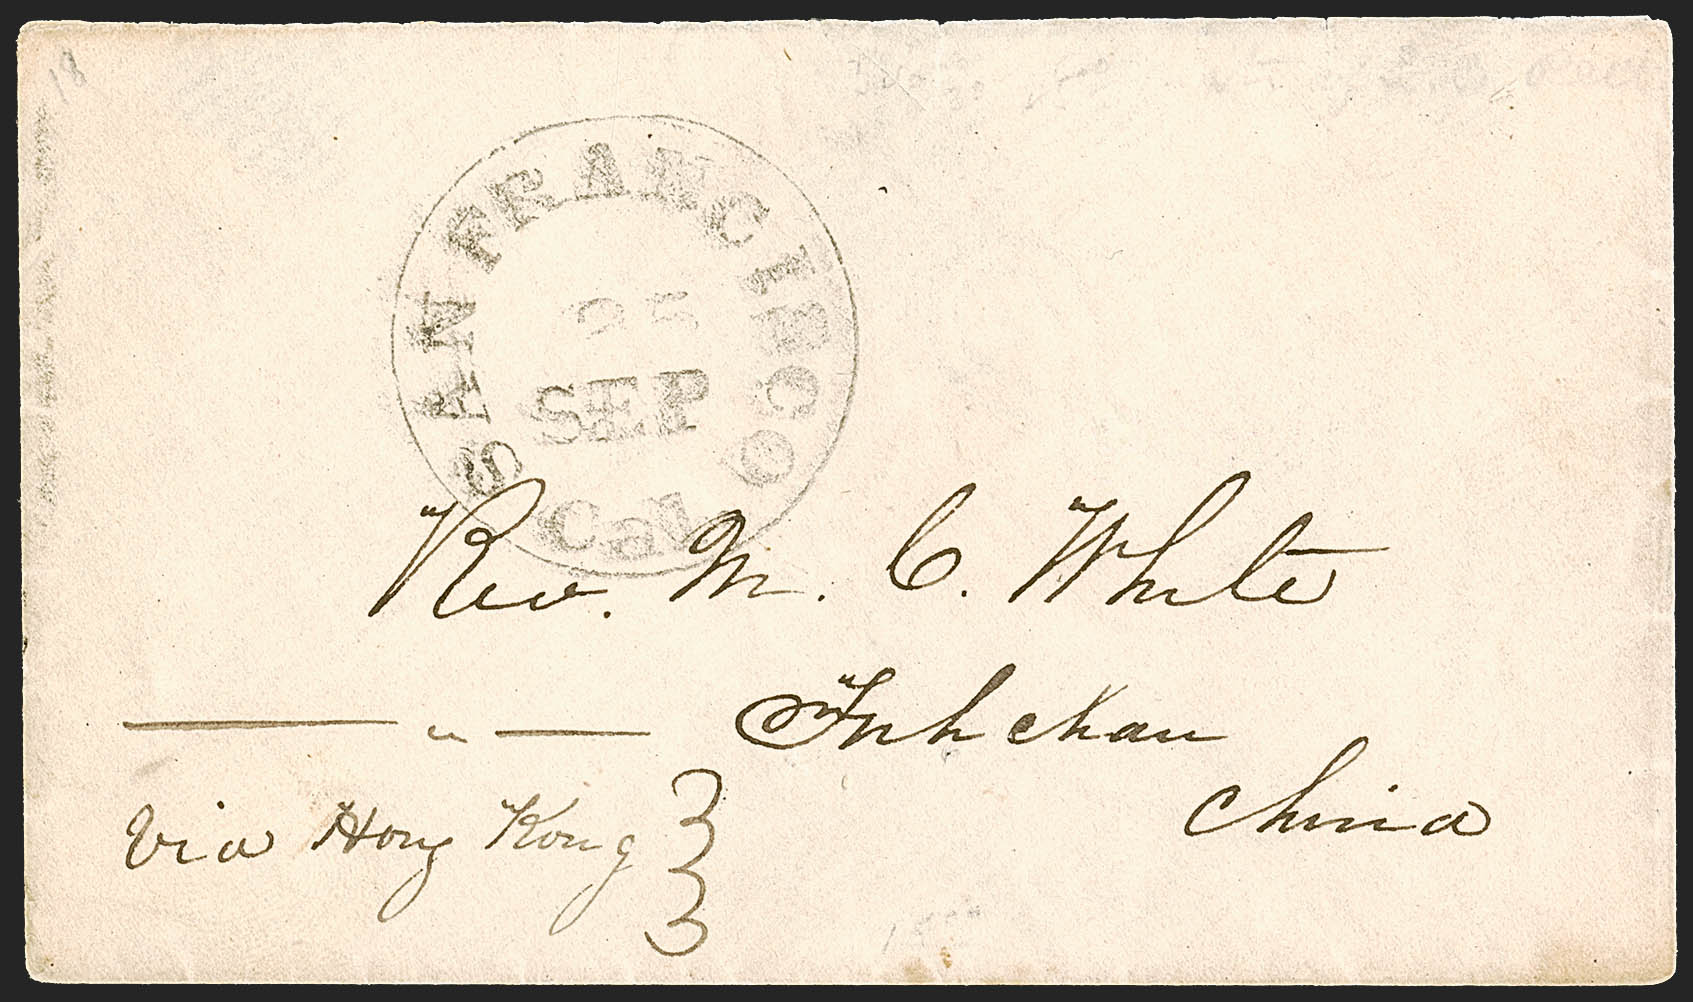 18
SAN FRANCISCO
25
SEP
Cal.
Rev. M. C. White
Fuh chau
China
via Hong Kong